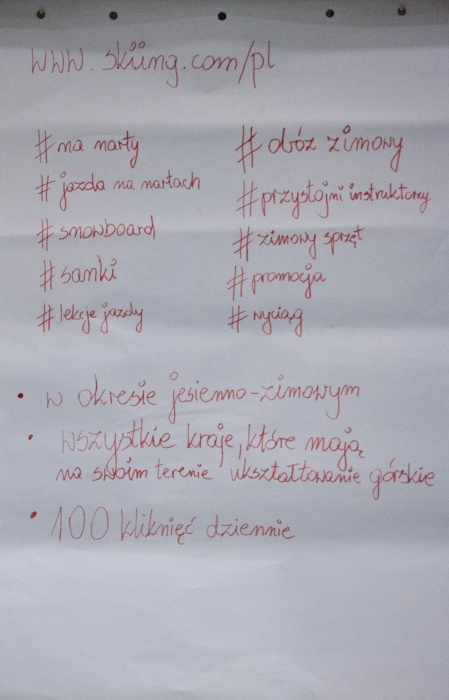 www.skiing.com/pl
# na narty
# jazda na nartach
# snowboard
# sanki
# lekcje jazdy
# obóz zimowy
# przystojni instruktorzy
# zimowy sprzęt
# promocja
# wyciąg
• w okresie jesienno-zimowym
• wszystkie kraje, które mają
na swoim terenie ukształtowanie górskie
• 100 kliknięć dziennie